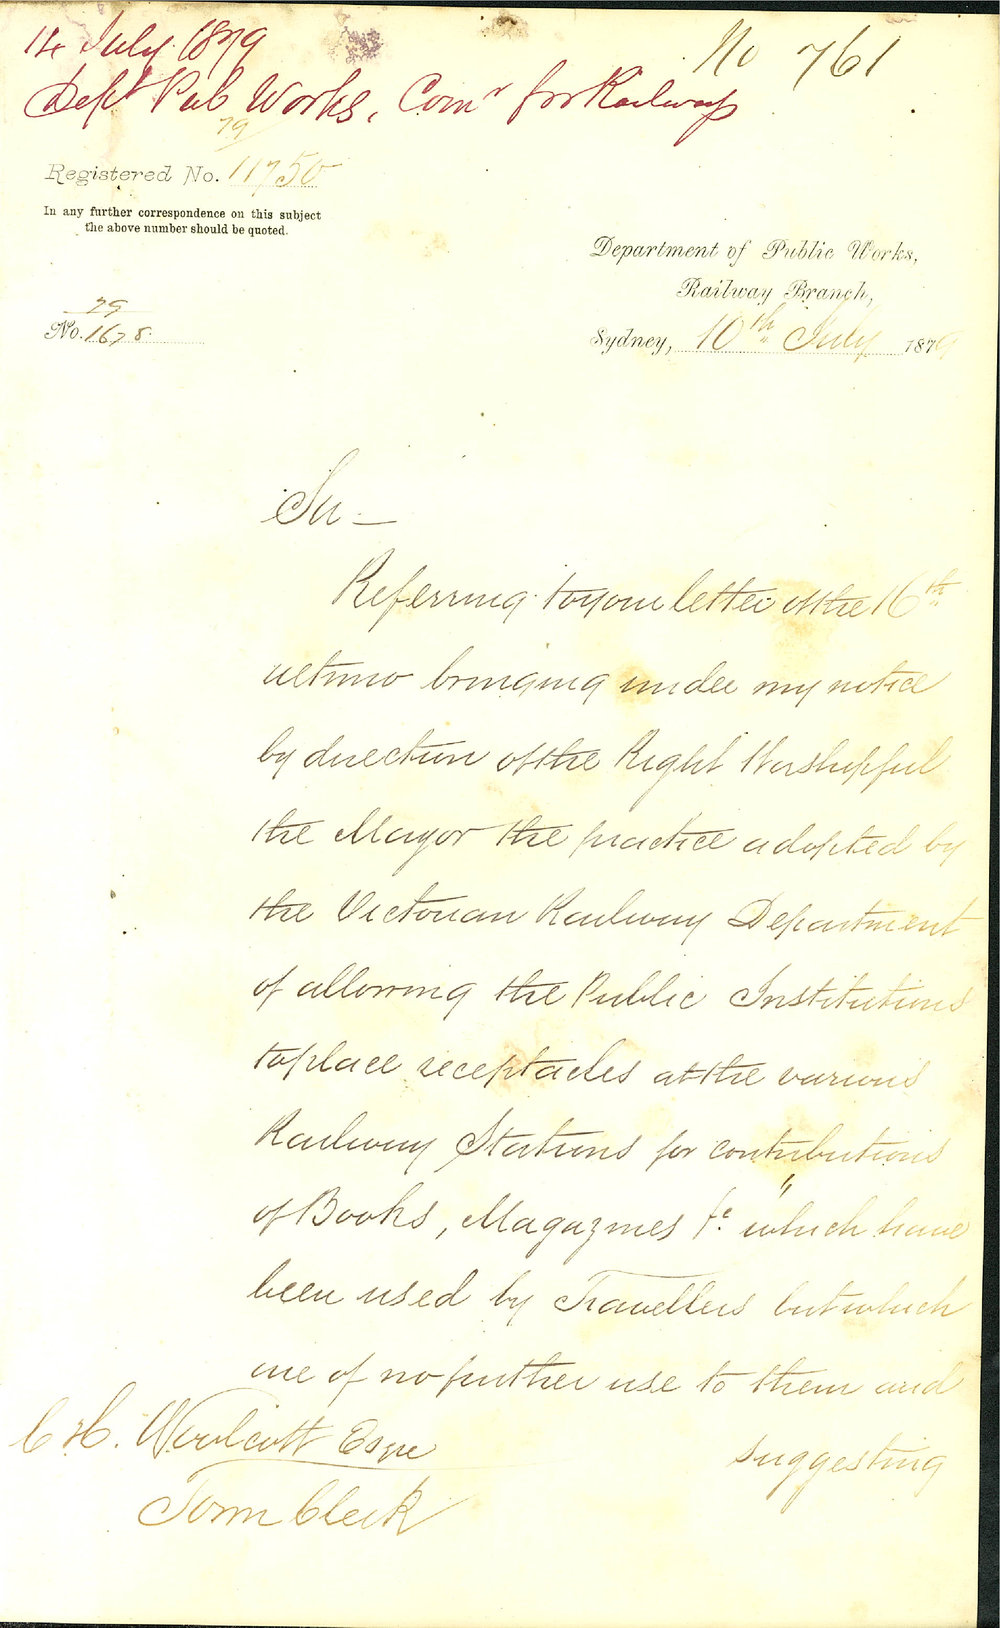 14 July 1879
No 761
Dept Pub Works, Comr for Railways
79
Registered No. 11750
In any further correspondence on this subject
the above number should be quoted.
Department of Public Works,
Railway Branch,
Sydney, 10th July 1879
79
No. 1678
Sir —
Referring to your letter of the 16th
ultimo bringing under my notice
by direction of the Right Worshipful
the Mayor the practice adopted by
the Victorian Railway Department
of allowing the Public Institutions
to place receptacles at the various
Railway Stations for contributions
of Books, Magazines &c. " which have
been used by Travellers but which
are of no further use to them and
suggesting
C H. Woolcott Esqre
Town Clerk